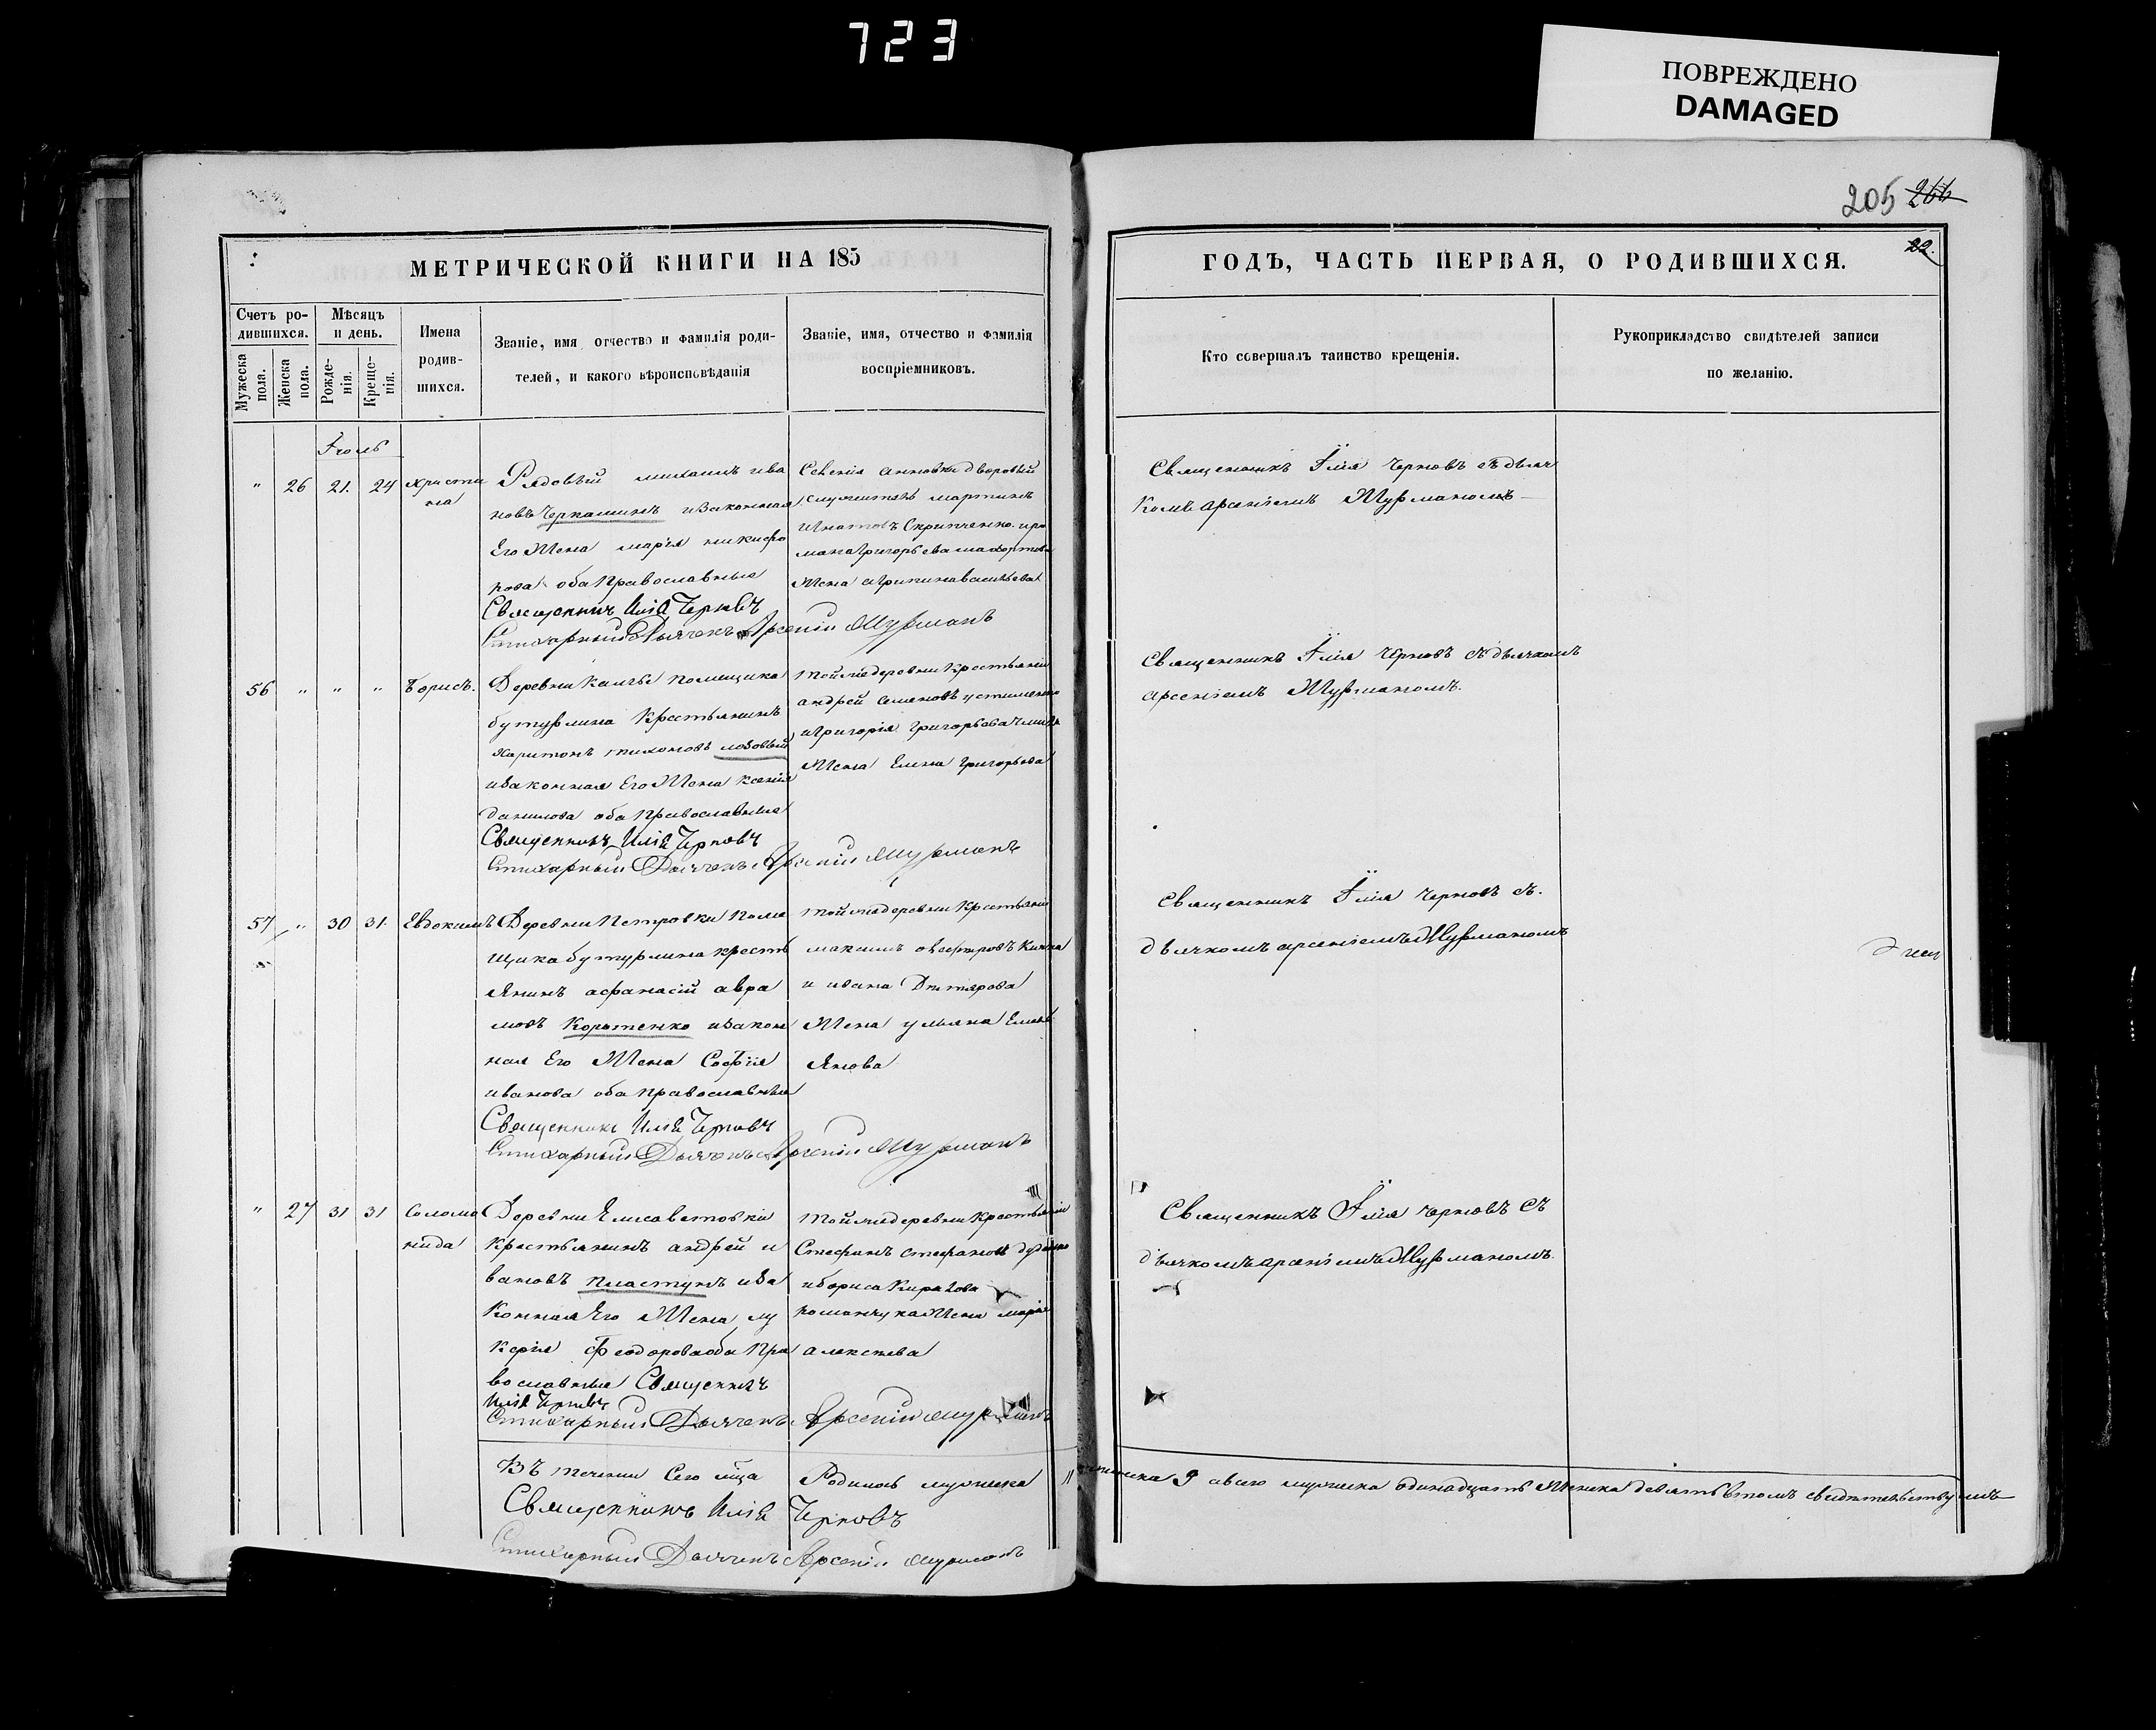 723
ПОВРЕЖДЕНО
DAMAGED
205 266
22.
МЕТРИЧЕСКОЙ КНИГИ НА 185
ГОДЪ, ЧАСТЬ ПЕРВАЯ, О РОДИВШИХСЯ.
Счетъ ро-
дившихся.
Мужеска
пола.
Женска
пола.
Мѣсяцъ
и день.
Рожде-
нія.
Креще-
нія.
Имена
родив-
шихся.
Званіе, имя отчество и фамилія роди-
телей, и какого вѣроисповѣданія
Званіе, имя, отчество и фамилія
воспріемниковъ.
Кто совершалъ таинство крещенія.
Рукоприкладство свидѣтелей записи
по желанію.
Іюль
" 26 21. 24 Христи
на
Рядовый михаилъ ива
новъ Черкашинъ изаконная
Его Жена марія никифо
рова оба Православные
Священникъ Илія Черновъ
Стихарный Дьячекъ Арсеній Мурманъ
дворовый
служитель мартинъ
Игнатовъ Скрипченко. и ро
мана Григорьева
Жена агрипина васильева
Священникъ Іилія Черновъ съ дьяч
комъ арсеніемъ Мурманомъ
56 " " " Борисъ.
Деревни помещика
бутурлина Крестьянинъ
Харитонъ тихоновъ лозовый
изаконная Его Жена Ксенія
данилова оба Православные
Священникъ Илія Черновъ
Стихарный Дьячекъ Арсеній Мурманъ
Тойже деревни Крестьянин
андрей семеновъ устименко
игригорія григорьева
Жена Елена григорьева
Священникъ Іилія Черновъ съ дьячкомъ
арсеніемъ Мурманомъ.
57 " 30 31. Евдокимъ
Деревни Петровки Поме
щика бутурлина крестъ
янинъ афанасій авра
мовъ Коротенко изакон
ная Его Жена Софія
иванова оба православные
Священникъ Илія Черновъ
Стихарный Дьячекъ Арсеній Мурманъ
тойже деревни Крестьянин
максимъ
и ивана
Жена ульяна Емель
янова
Священникъ Іилія Черновъ съ.
дьячкомъ арсеніемъ Мурманомъ
" 27 31 31 Солома
нида
Деревни Елисаветовки
Крестьянинъ андрей и
вановъ пластунъ иза
Конная Его Жена лу
керія Феодорова оба Пра
вославные Священникъ
Илія Черновъ
Стихарный Дьячекъ Арсеній Мурманъ
тойже деревни Крестьянин
Стефанъ стефановъ
иборису
романчука Жена марія
алексѣева
Священникъ Іилія Черновъ съ
дьячкомъ арсеніемъ Мурманомъ.
Въ теченіи Сего мѣца Родилось мужеска 11 женска 9 авсего мужеска одинадцать Женска девять втомъ свидѣтельствуемъ
Священникъ Илія Черновъ
Стихарный Дьячекъ Арсеній Мурманъ